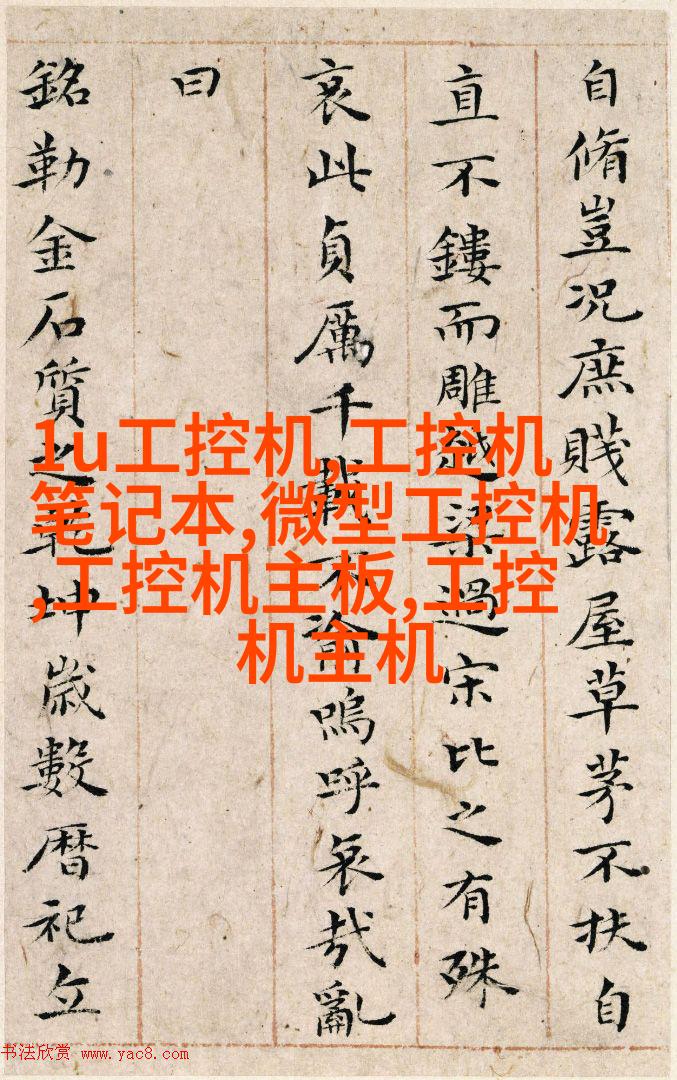 自脩豈況庶賤露屋草茅不扶自
直不鏤而雕越梁過宋比之有殊
哀此貞厲千載不渝嗚呼哀哉亂
曰
銘勒金石質之乾坤歲數暦祀立
1u工控机,工控机
笔记本,微型工控机
,工控机主板,工控
机主机
书法欣赏 www.yac8.com